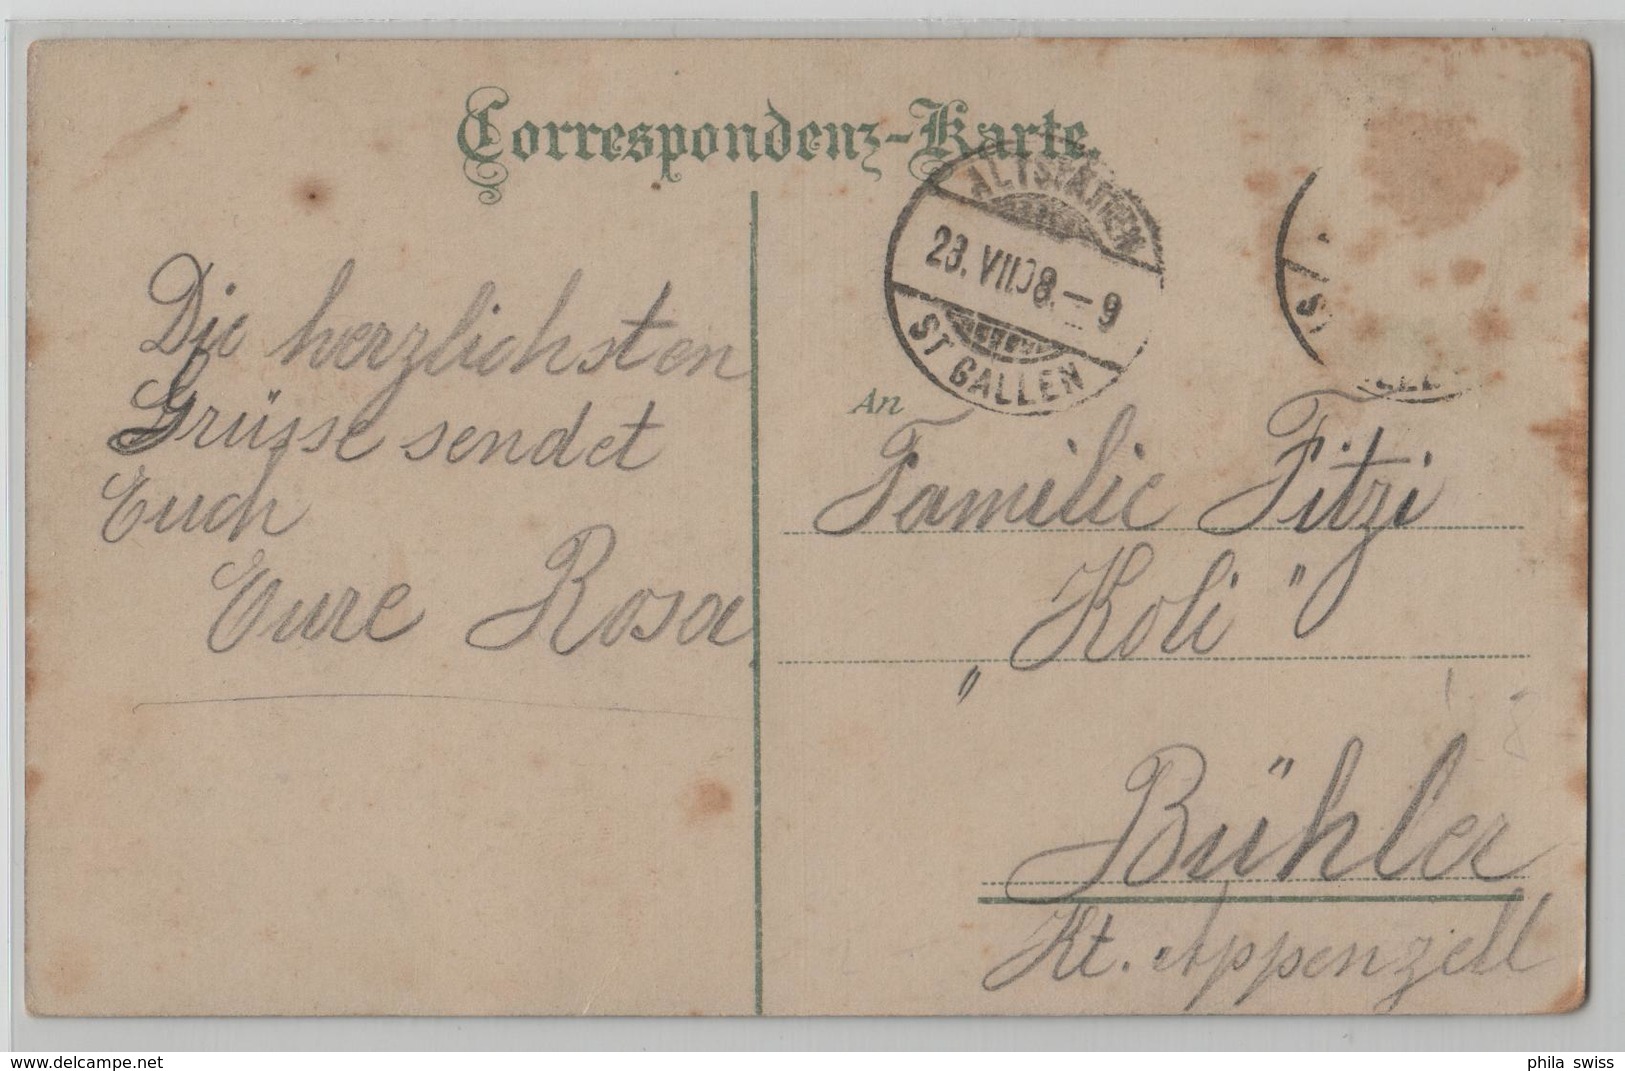 Correspondenz-Karte.
ALTSTÄTTEN
23. VII.08.–9
ST GALLEN
Die herzlichsten
Grüsse sendet
Euch
Eure Rosa.
An
Familie Fitzi
„Koli"
Bühler
Kt. Appenzell
www.delcampe.net
phila swiss